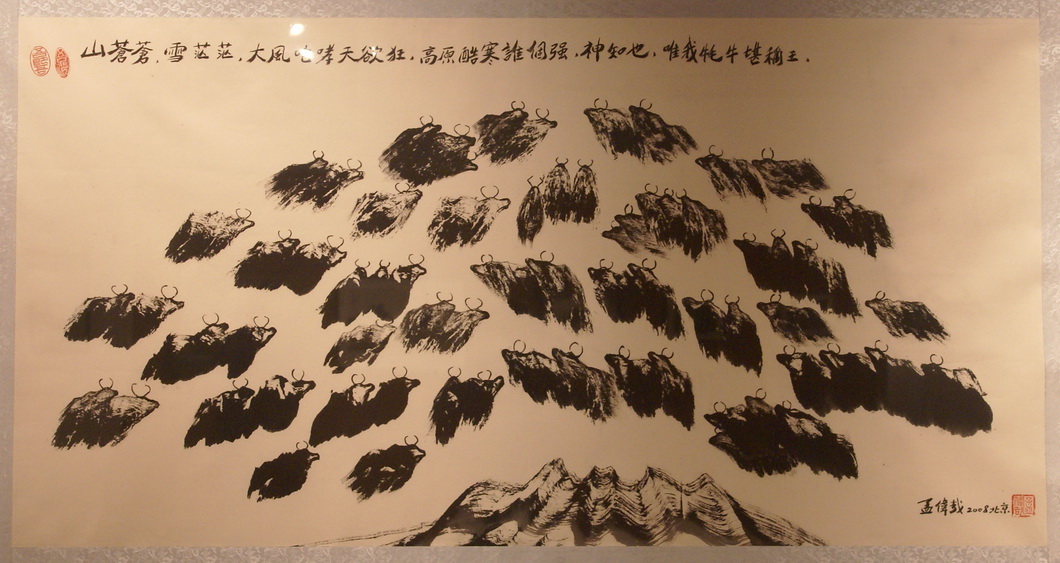 山蒼蒼，雪茫茫，大風咆哮天欲狂，高原酷寒誰個强，神知也，唯我牦牛堪稱王。
孟偉哉2008北京